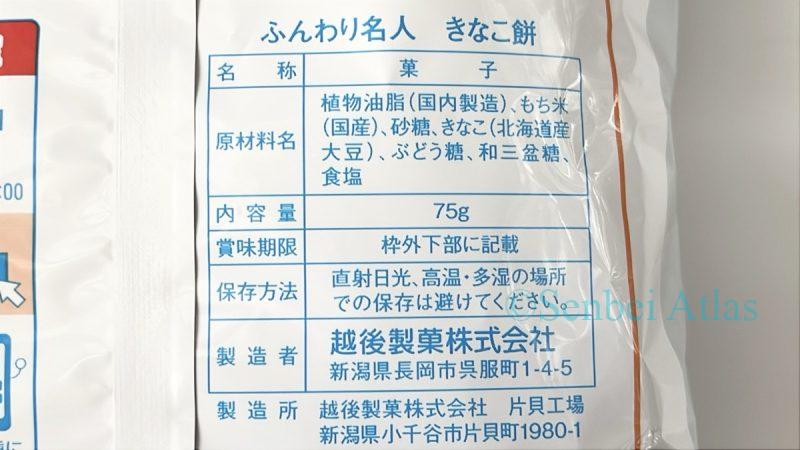 ふんわり名人 きなこ餅
名称 菓子
原材料名 植物油脂(国内製造)、もち米
(国産)、砂糖、きなこ(北海道産
大豆)、ぶどう糖、和三盆糖、
食塩
内容量 75g
賞味期限 枠外下部に記載
保存方法 直射日光、高温・多湿の場所
での保存は避けてください。
製造者 越後製菓株式会社
新潟県長岡市呉服町1-4-5
製造所 越後製菓株式会社 片貝工場
新潟県小千谷市片貝町1980-1
©Senbei Atlas
:00
に